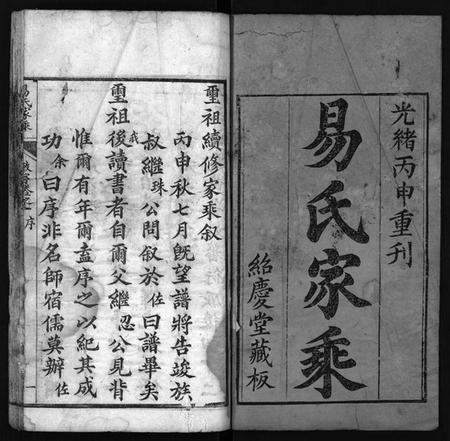 光緒丙申重刊
易氏家乘
紹慶堂藏板
璽祖續修家乘叙
丙申秋七月旣望譜將告竣族
叔繼珠公問叙於佐曰譜畢矣我
璽祖後讀書者自爾父繼忍公見背
惟爾有年爾盍序之以紀其成
功余曰序非名師宿儒莫辦佐
易氏家乘
序